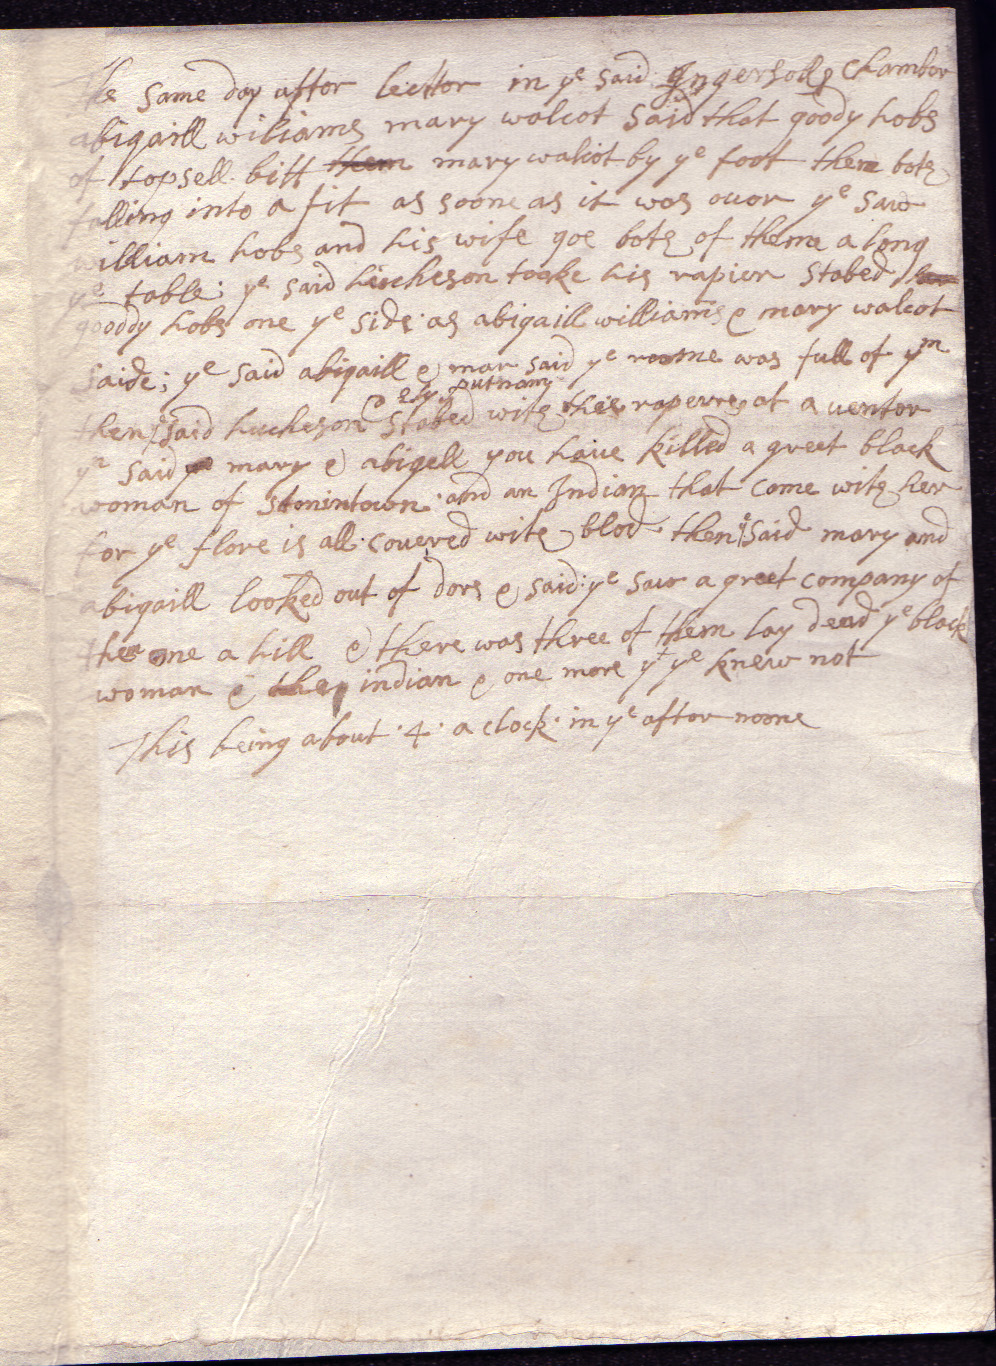 the same day after lecttor in ye said Ingersolls Chambor
abigaill wiliams mary walcot said that goody hobs
of topsell bitt them mary walcot by ye foot them both
falling into a fit as soone as it was ouor ye said
william hobs and his wife goe both of theme a long
ye table; ye said hucheson tooke his rapier stobed her
gooddy hobs one ye side as abigaill williams & mary walcot
saide; ye said abigaill & mar said ye roome was full of ym
& ely putnam
then ye said hucheson stabed with their raperres at a uentor
yn said ye mary & abigell you haue killed a greet black
woman of Stonintown and an Indian that come with her
for ye flore is all couered with blod then ye said mary and
abigaill looked out of dors & said ye saw a greet company of
them one a hill & there was three of them lay dead ye black
woman & the indian & one more yt ye knew not
This being about 4 a clock in ye aftor noone